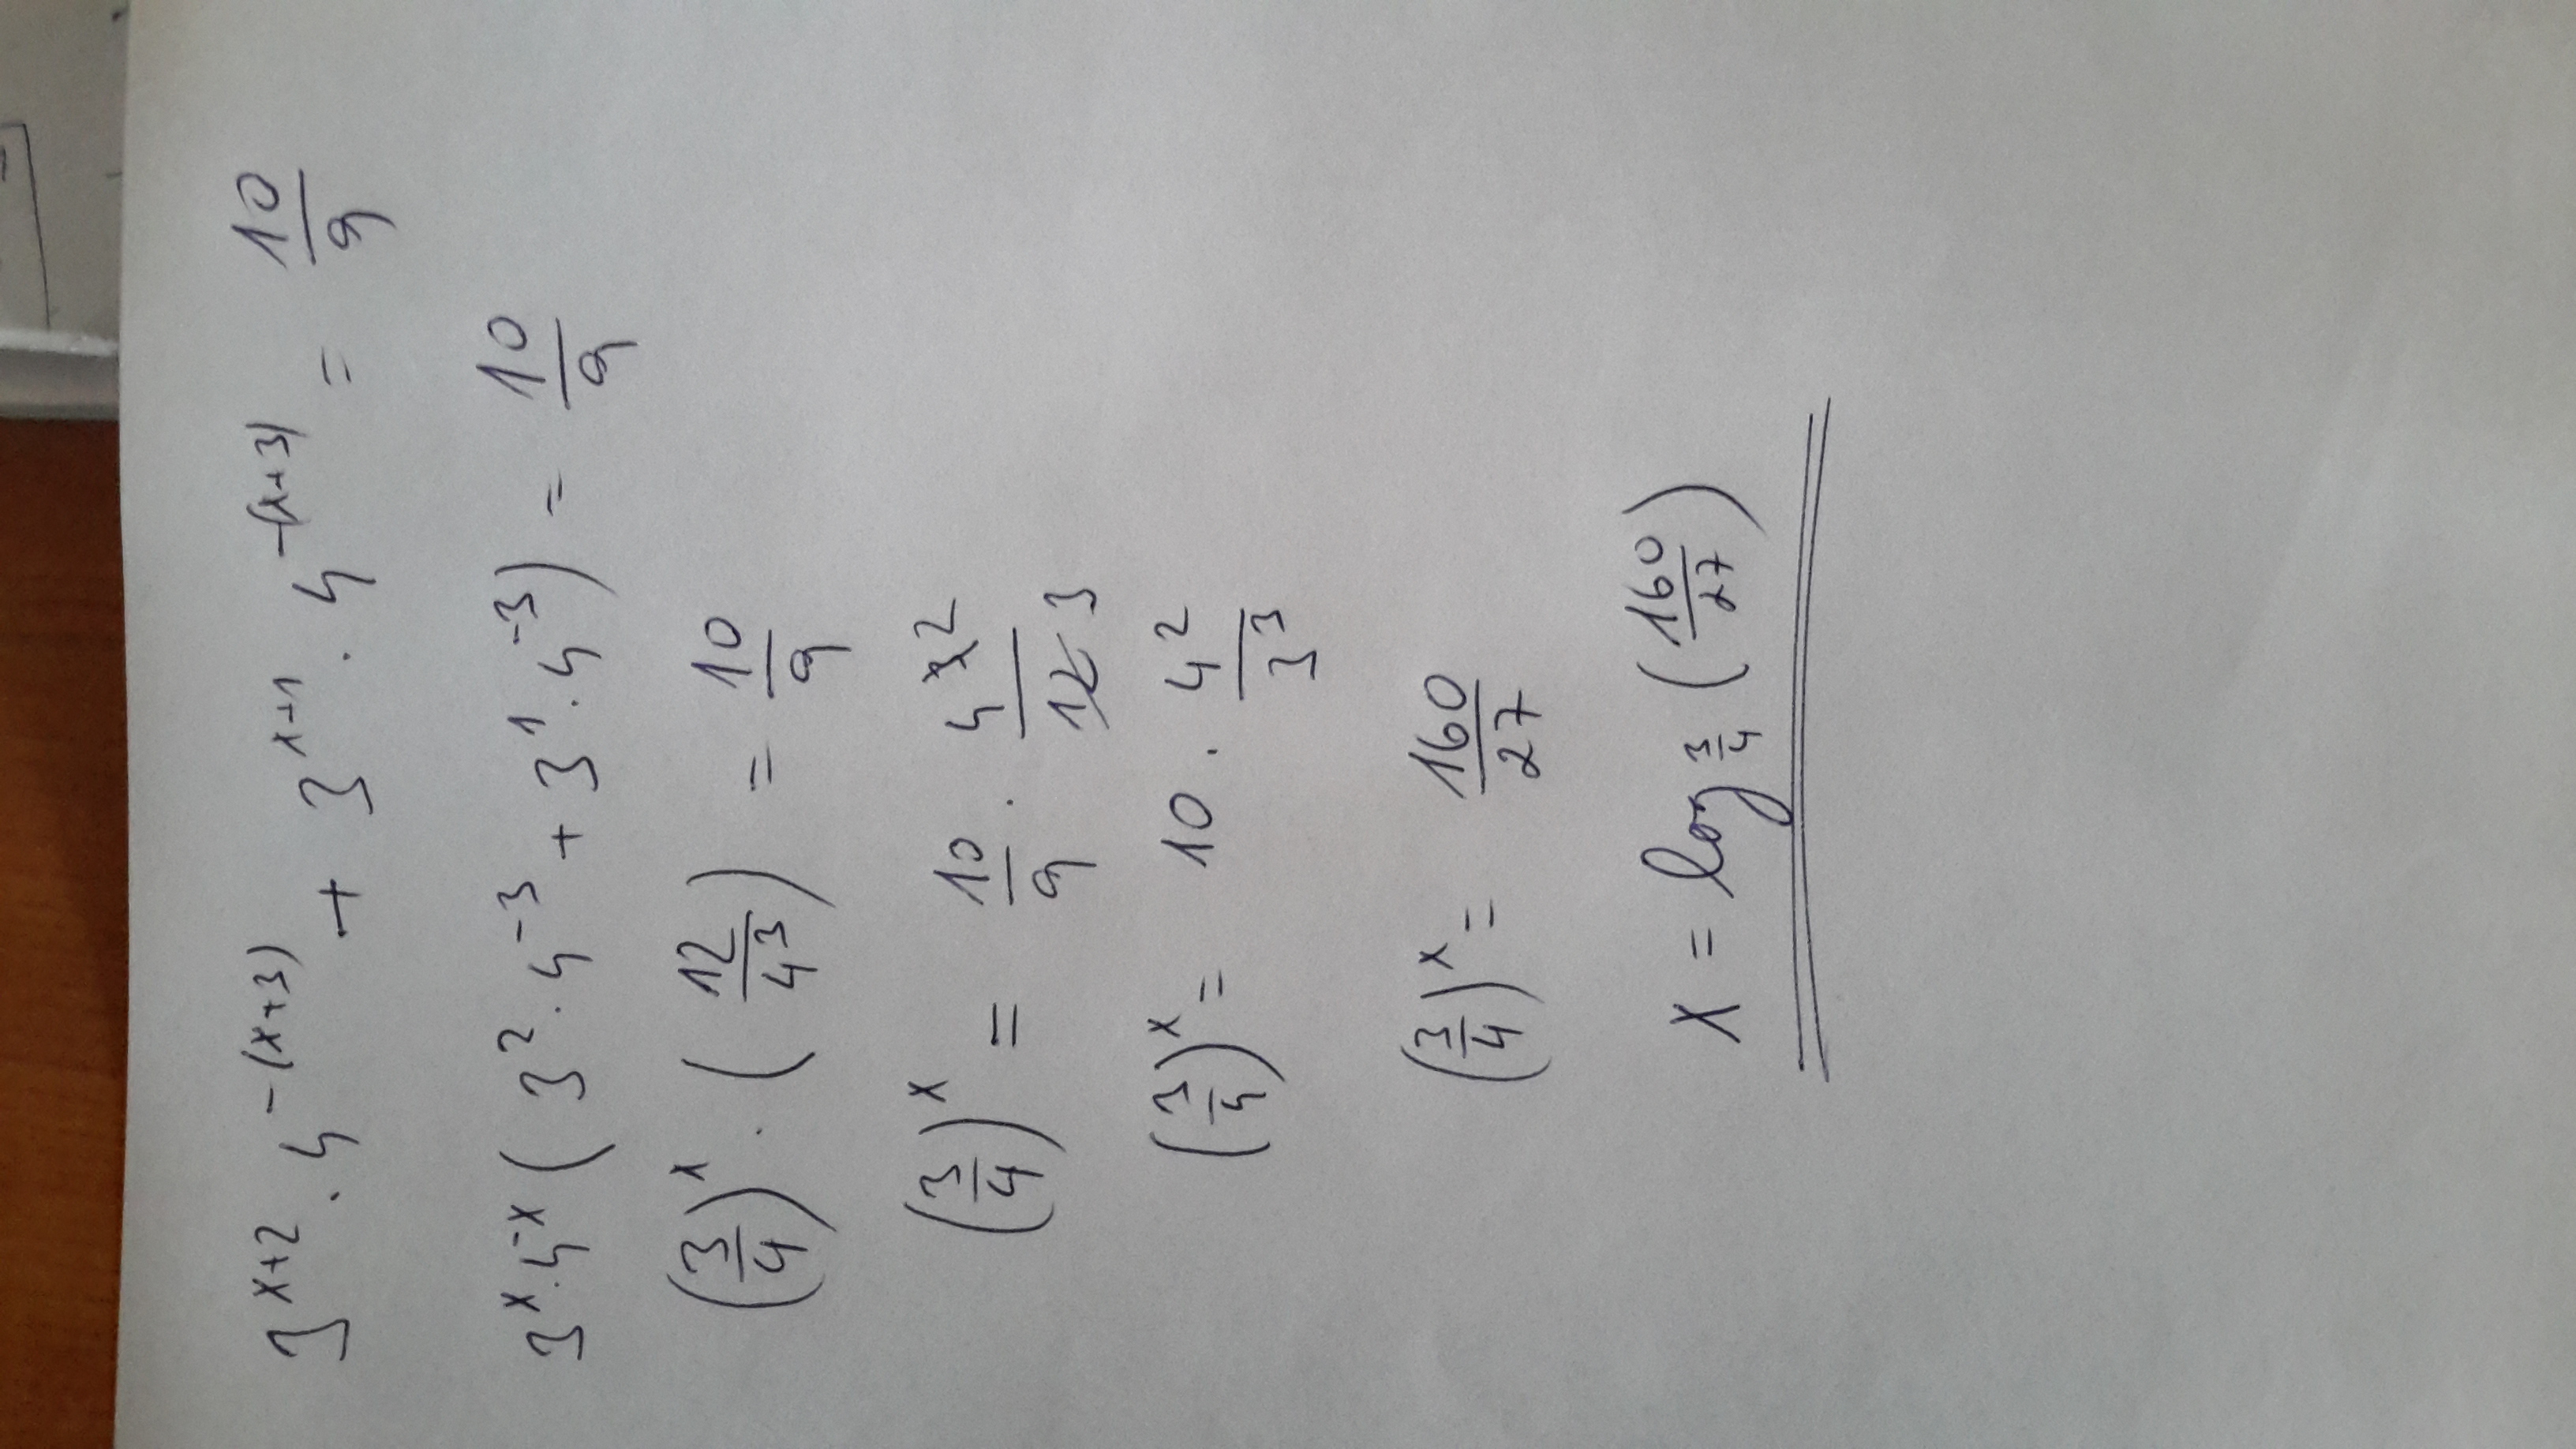 3^{x+2} · 4^{-(x+3)} + 3^{x+1} · 4^{-(x+3)} = \frac{10}{9}
3^x · 4^{-x} (3^2 · 4^{-3} + 3^1 · 4^{-3}) = \frac{10}{9}
(\frac{3}{4})^x · (\frac{12}{4^3}) = \frac{10}{9}
(\frac{3}{4})^x = \frac{10}{9} · \frac{4^{\cancel{3} 2}}{\cancel{12} 3}
(\frac{3}{4})^x = 10 · \frac{4^2}{3^3}
(\frac{3}{4})^x = \frac{160}{27}
x = log_{\frac{3}{4}} (\frac{160}{27})